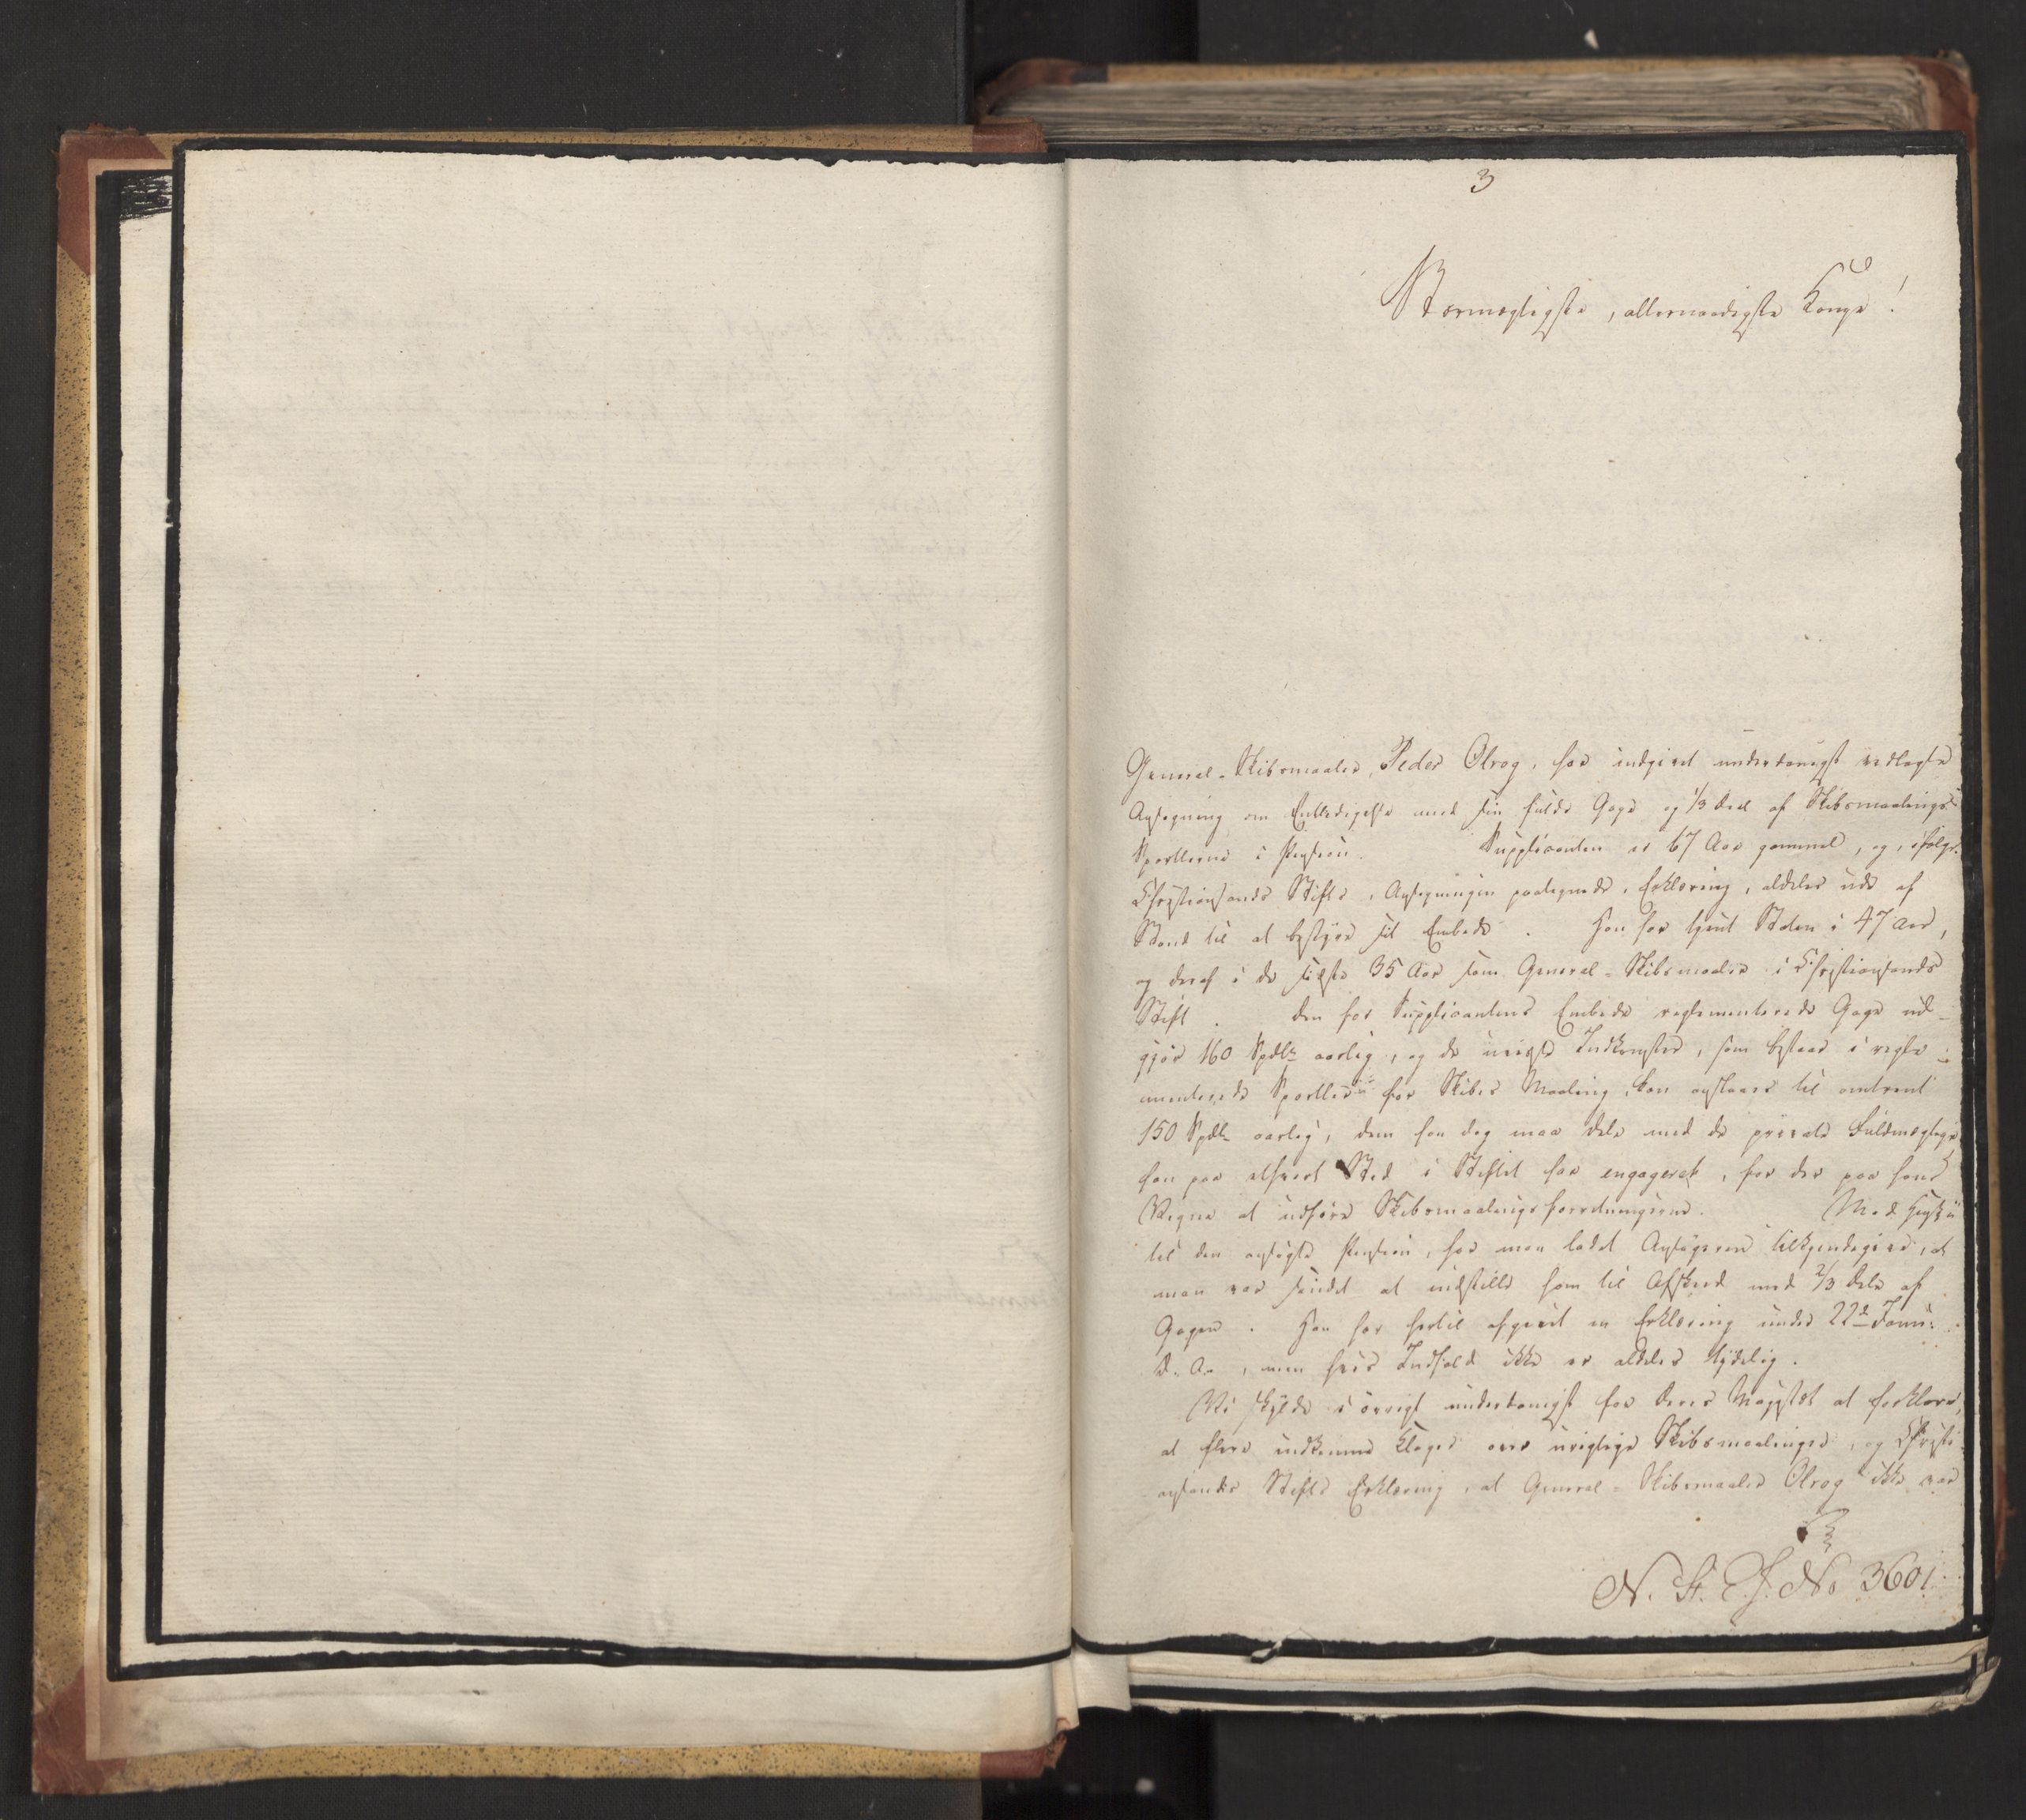 3
Stormægtigste, allernaadigste Konge!
General-Skibsmaaler, Peder Olrog, har indgivet underdanigst vedlagte
Ansøgning om Entledigelse med sin fulde Gage og 1/3 Deel af Skibsmaalings-
Sportlerne i Pension. Supplicanten er 67 Aar gammel, og, ifølge
Christiansands Stifts, Ansøgningen paategnede, Erklæring, aldeles ude af
Stand til at bestyre sit Embede. Han har tjent Staten i 47 Aar,
og deraf i de sidste 35 Aar som General-Skibsmaaler i Christiansands
Stift. Den for Supplicantens Embede reglementerede Gage ud-
gjør 160 Spdlr aarlig, og de uvisse Indkomster, som bestaae i regle-
menterede Sportler for Skibes Maaling, kan anslaaes til omtrent
150 Spdlr aarlig, dem han dog maa dele med de private Fuldmægtige
han paa ethvert Sted i Stiftet har engageret, for der paa hans
Vegne at udføre Skibsmaalingsforretningerne. Med Hensyn
til den ansøgte Pension, har man ladet Ansøgeren tilkjendegive, at
man var sindet at indstille ham til Afsked med 2/3 Dele af
Gagen. Han har hertil afgivet en Erklæring under 22de Janu:
d. A., men hvis Indhold ikke er aldeles tydelig.
Vi skylde i øvrigt underdanigst for Deres Majestæt at forklare,
at flere indkomne Klager over urigtige Skibsmaalinger, og Christi-
ansandes Stifts Erklæring, at General-Skibsmaaler Olrog ikke var
N. St. C. J. No 3601.